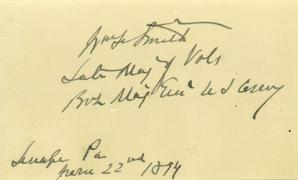 Wm F Smith
Late Maj Gen Vols
Bvt Maj Gen U S Army
Lenape Pa
June 22nd 1894